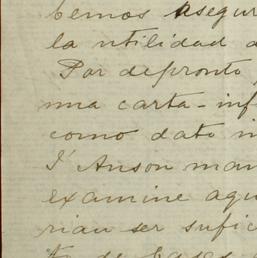 bemos asegur
la utilidad d
Por depronto
una carta-inf
como dato in
I' Anson man
examine aqu
rian ser sufic
de bases